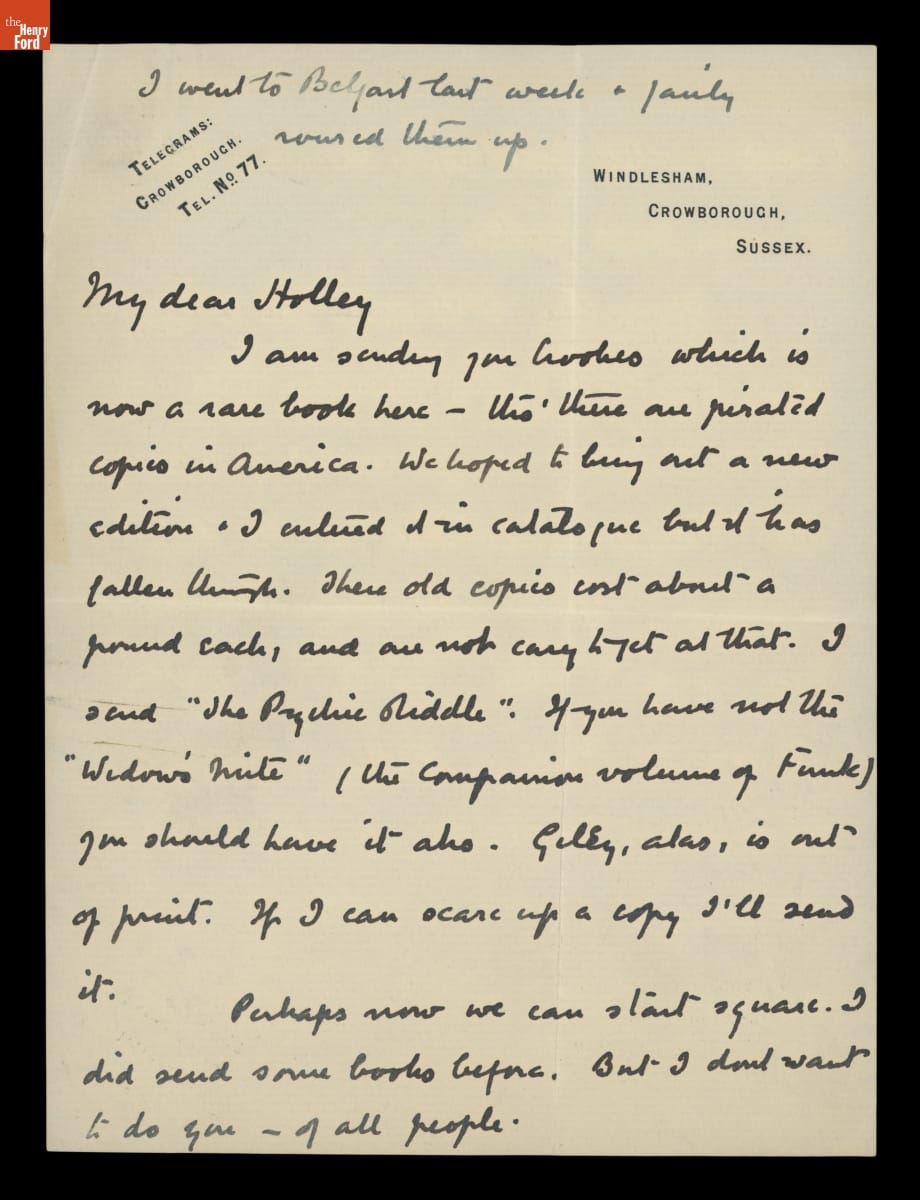 the
Henry
Ford
I went to Belfast last week + fairly
roused them up.
TELEGRAMS:
CROWBOROUGH.
TEL. No. 77.
WINDLESHAM,
CROWBOROUGH,
SUSSEX.
My dear Holley
I am sending you Crookes which is
now a rare book here – tho' there are pirated
copies in America. We hoped to bring out a new
edition + I entered it in catalogue but it has
fallen through. These old copies cost about a
pound each, and are not easy to get at that. I
send "The Psychic Riddle". If you have not the
"Widow's Mite" (the companion volume of Funk)
you should have it also. Geley, alas, is out
of print. If I can scare up a copy I'll send
it.
Perhaps now we can start square. I
did send some books before. But I dont want
to do you – of all people.